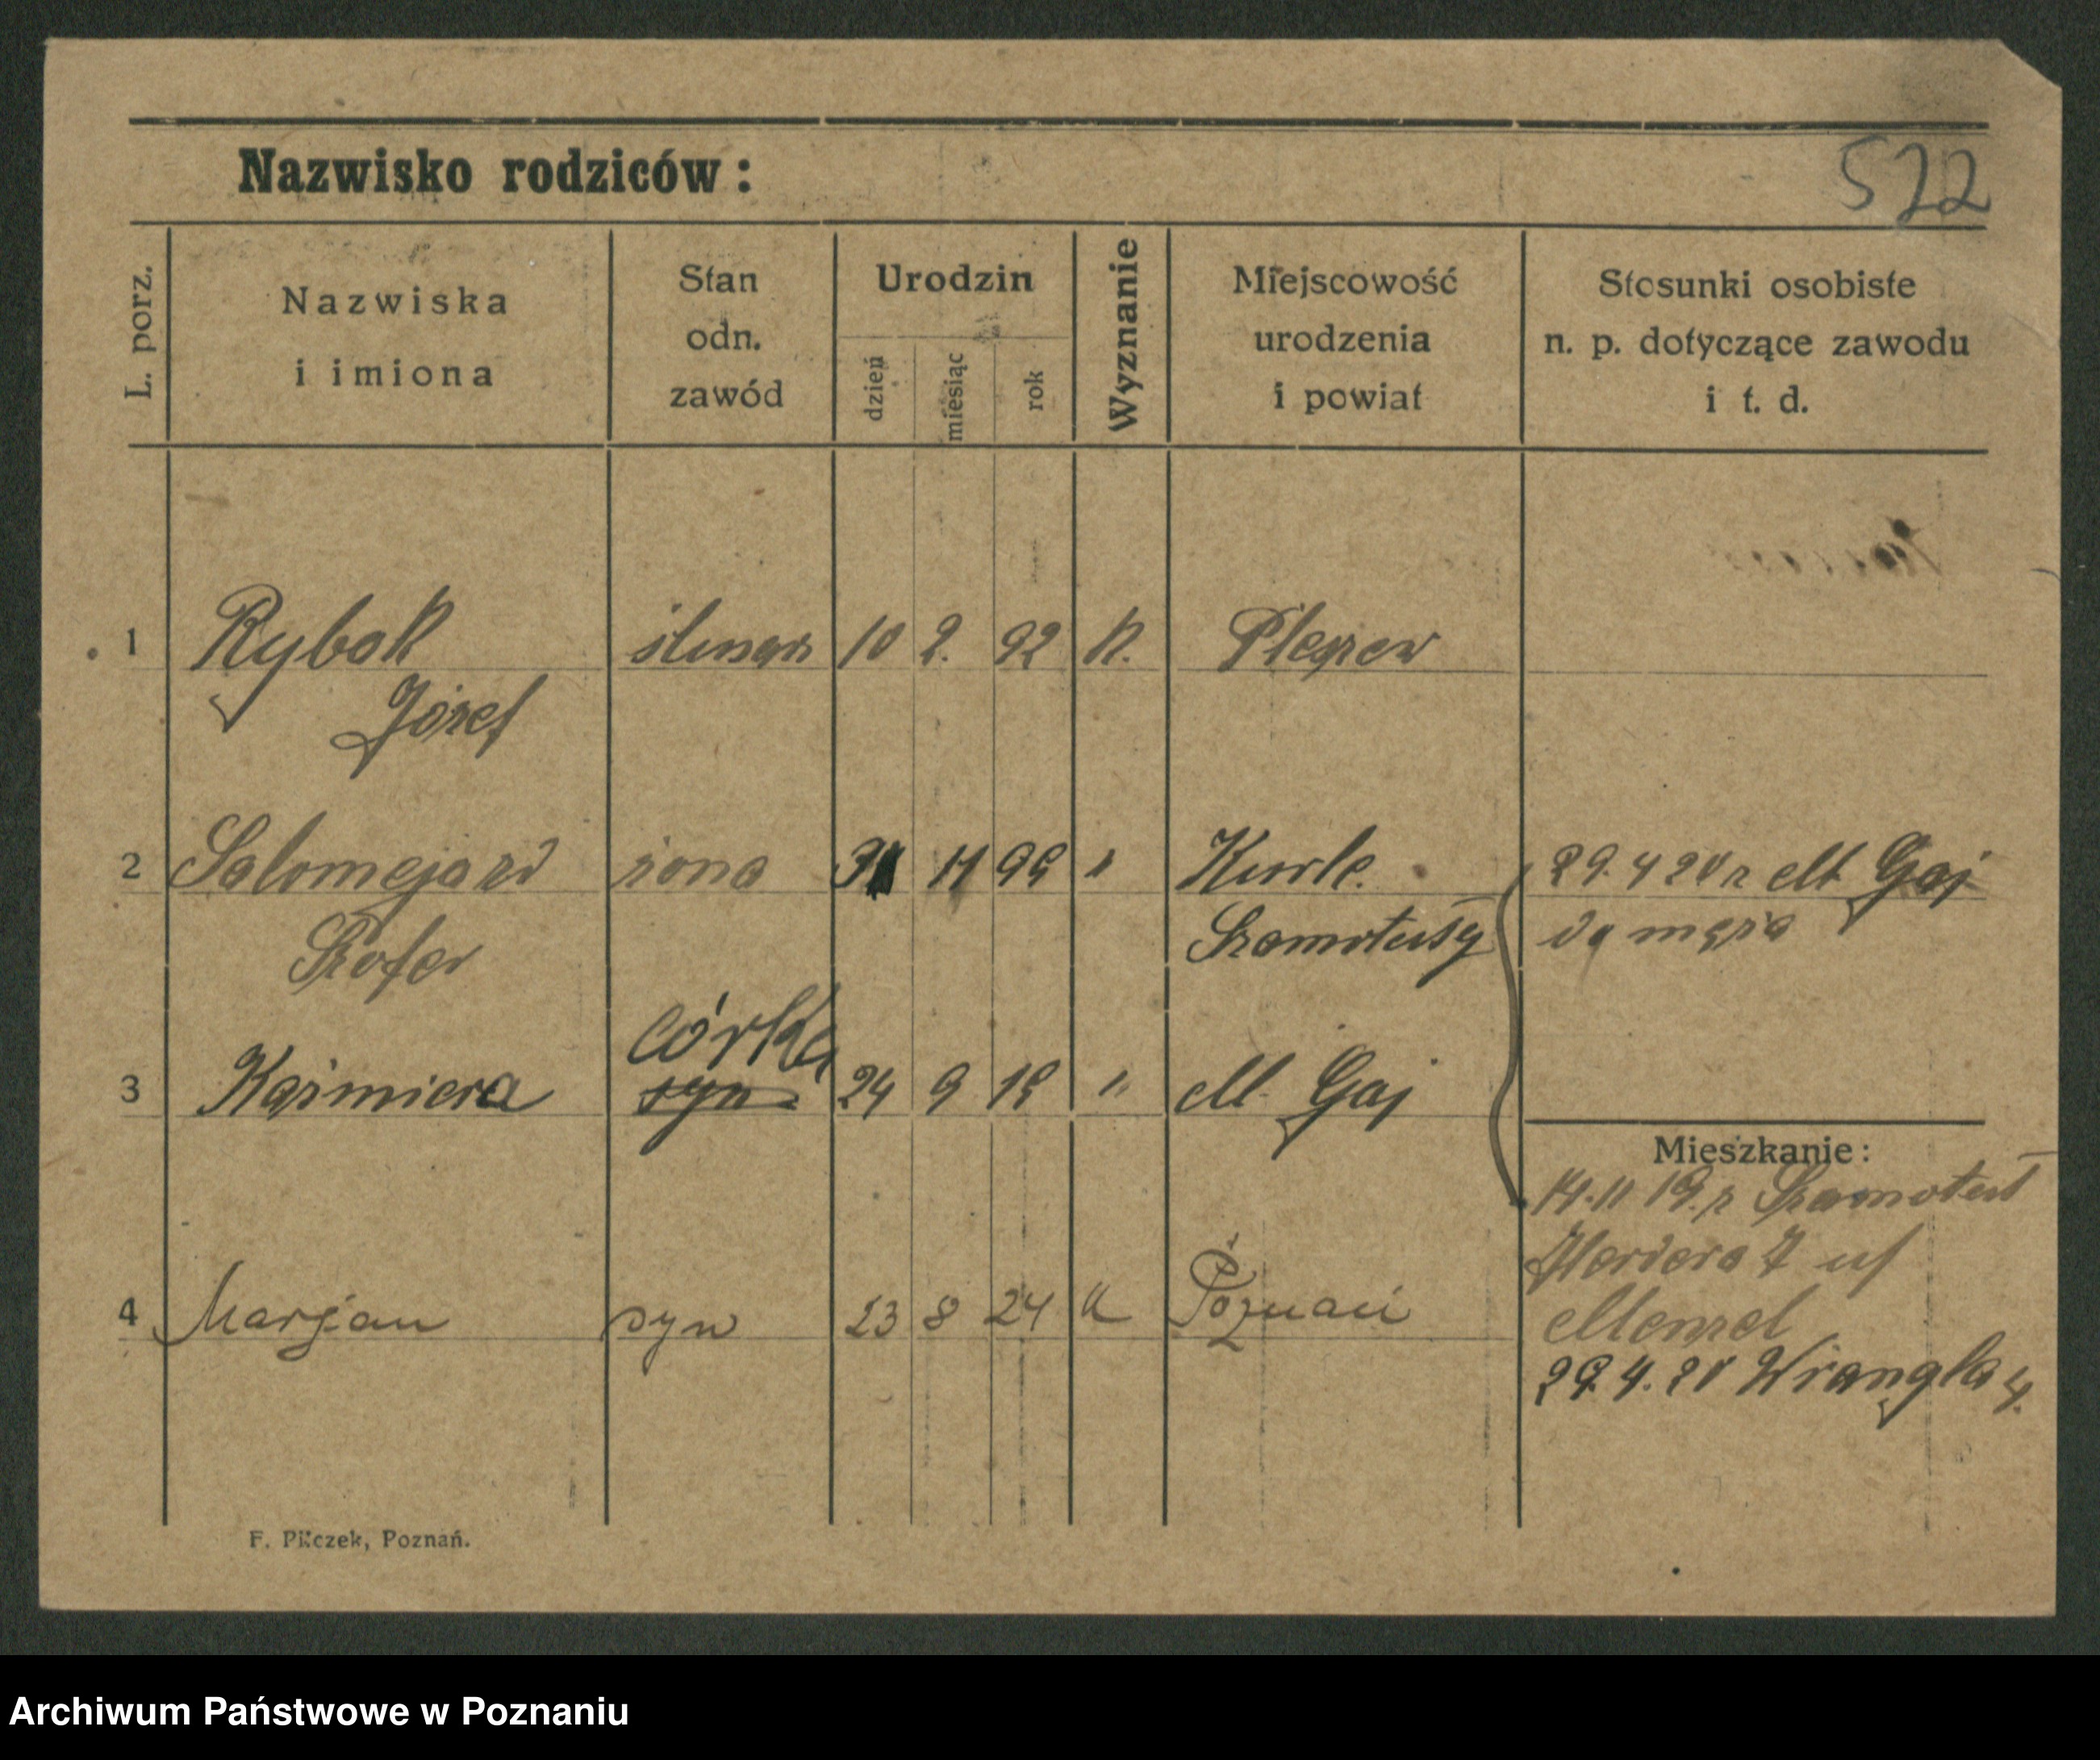 522
Nazwisko rodziców:
L. porz.
Nazwiska
i imiona
Stan
odn.
zawód
Urodzin
dzień
miesiąc
rok
Wyznanie
Miejscowość
urodzenia
i powiat
Stosunki osobiste
n. p. dotyczące zawodu
i t. d.
1 Rybak ślusarz 10 2. 92 k. Pleszew
Józef
2 Salomeja zd żona 11 "
29.4 20 r M. Gaj
Szamotuły do męża
Szofer
córka
3 Kaźmiera syn 24 9 19 " M. Gaj
Mieszkanie:
11 19. r Szamotuł
4 Marjan syn 23 8 24 k Poznań
Menzel
29.4.20 Wrangla 4.
F. Pilczek, Poznań.
Archiwum Państwowe w Poznaniu